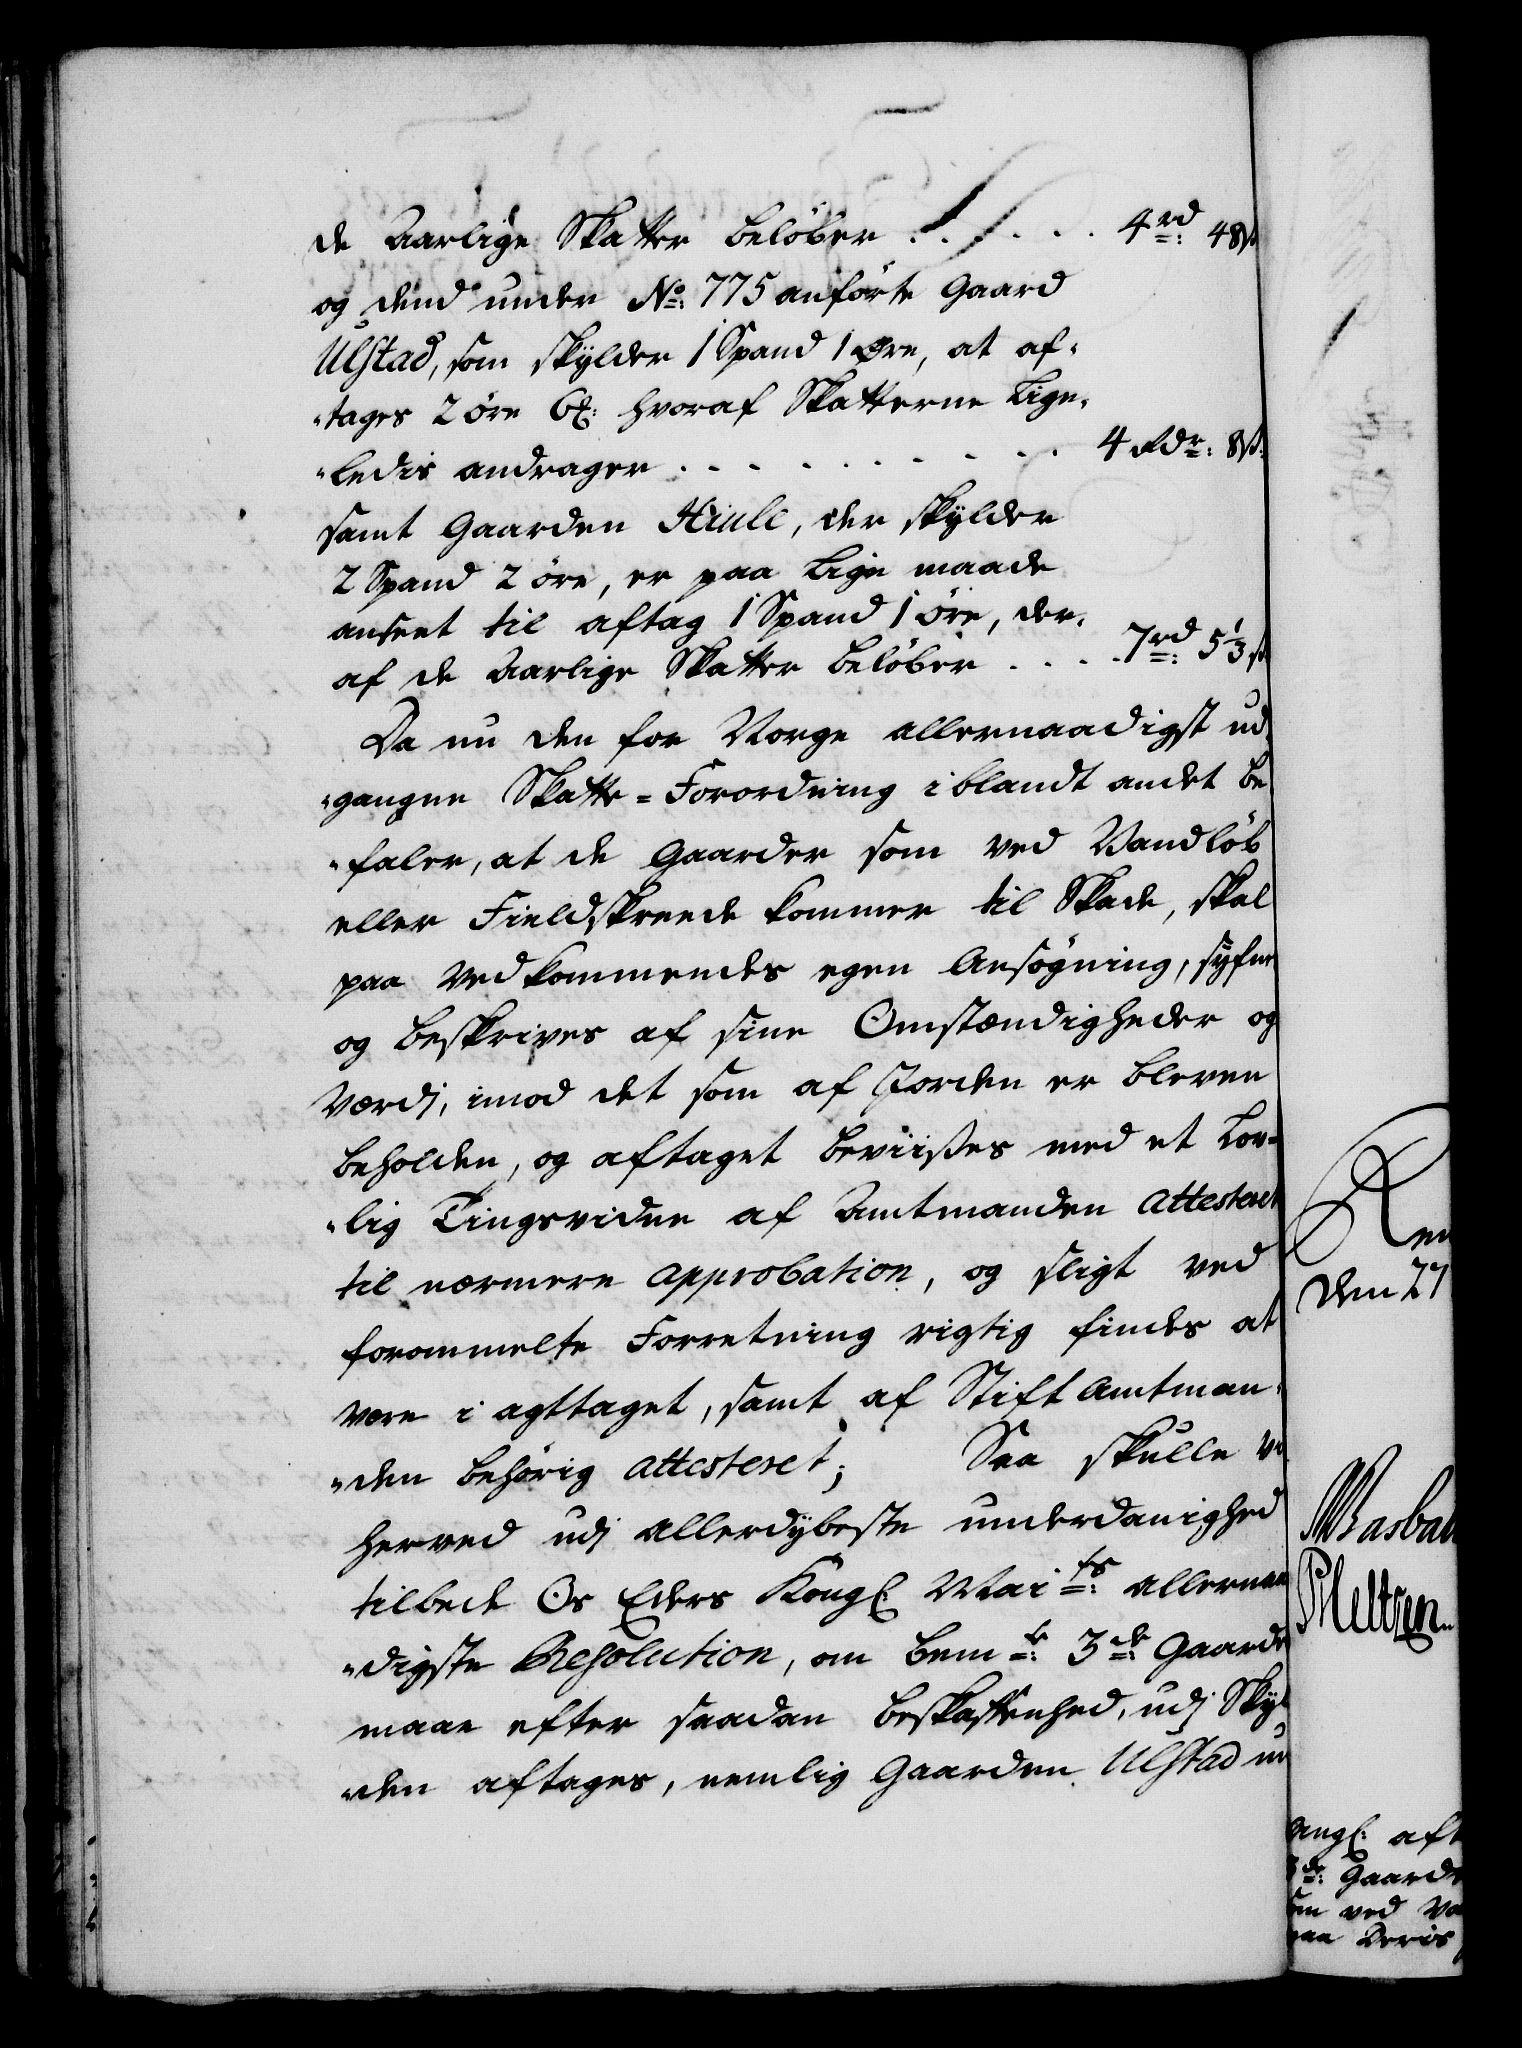 de Aarlige Skatter beløber . . . . . . 4 rd: 48 s
og dend under No: 775 anførte Gaard
Ulstad, som skylder 1 Spand 1 Øre, at af-
-tages 2 øre 6 hvoraf Skatterne lige-
-ledis andrager . . . . . . . . . . . 4 Rdr: 8 s:
samt Gaarden Hiule, der skylder
2 Spand 2 øre, er paa lige maade
anseet til aftag 1 Spand 1 øre, der-
af de Aarlige Skatter beløber . . . . . 7 rd: 5 1/3 s
Da nu den for Norge allernaadigst ud-
-gangne Skatte-Forordning iblandt andet be-
-faler, at de Gaarder som ved Vandløb
eller Fieldskreede kommer til Skade, skal
paa Vedkommendes egen Ansøgning, syfne
og beskrives af sine Omstændigheder og
Værdj, imod det som af Jorden er bleven
beholden, og aftaget beviises med et Lov-
-lig Tingsvidne af Amtmanden attesteret
til nærmere approbation, og sligt ved
forommelte Forretning rigtig findes at
være i agttaget, samt af Stift Amtman-
-den behørig attesteret; Saa skulle vi
herved udj allerdybeste underdanighed
tilbede Os Eders Kongl: Mai ts: allernaa
-digste Resolution, om bem te: 3 de: Gaarde
maae efter saadan beskaffenhed, udj Skyl
-den aftages, nemlig Gaarden Ulstad un
Ren
den 27
Rasbal
PMeltzen
angl: aft
3 de: Gaarde
om ved Va
paa Deris